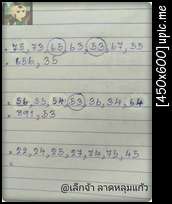 75, 73, 65, 63, 53, 67, 35
= 656, 35
= 56, 35, 54, 53, 36, 34, 64
= 391, 53
= 22, 24, 25, 27, 74, 75, 45
=
@เล็กจ๋า ลาดหลุมแก้ว
[450x600] upic.me